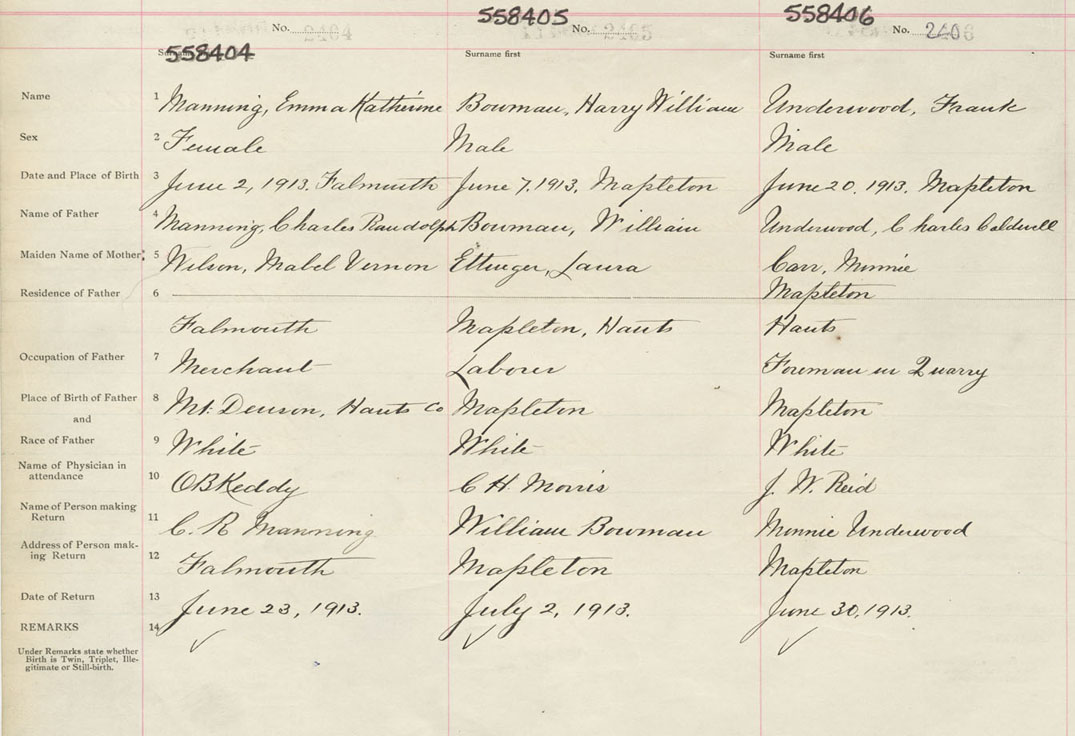 558405 558406
No. 2404 No. 2405 No. 2406
558404 Surname first Surname first
Name 1 Manning, Emma Katherine Bowman, Harry William Underwood, Frank
Sex 2 Female Male Male
Date and Place of Birth 3 June 2, 1913. Falmouth June 7, 1913, Mapleton June 20, 1913. Mapleton
Name of Father 4 Manning, Charles Randolph Bowman, William Underwood, Charles Caldwell
Maiden Name of Mother 5 Wilson, Mabel Vernon Ettinger, Laura Carr, Minnie
Residence of Father 6 Mapleton
Falmouth Mapleton, Hants Hants
Occupation of Father 7 Merchant Labourer Foreman in Quarry
Place of Birth of Father 8 Mt. Denson, Hants Co Mapleton Mapleton
and
Race of Father 9 White White White
Name of Physician in
attendance 10 O B Keddy C H Morris J. W. Reid
Name of Person making
Return 11 C. R Manning William Bowman Minnie Underwood
Address of Person mak-
ing Return 12 Falmouth Mapleton Mapleton
Date of Return 13 June 23, 1913. July 2, 1913. June 30, 1913.
REMARKS 14 ✓ ✓ ✓
Under Remarks state whether
Birth is Twin, Triplet, Ille-
gitimate or Still-birth.